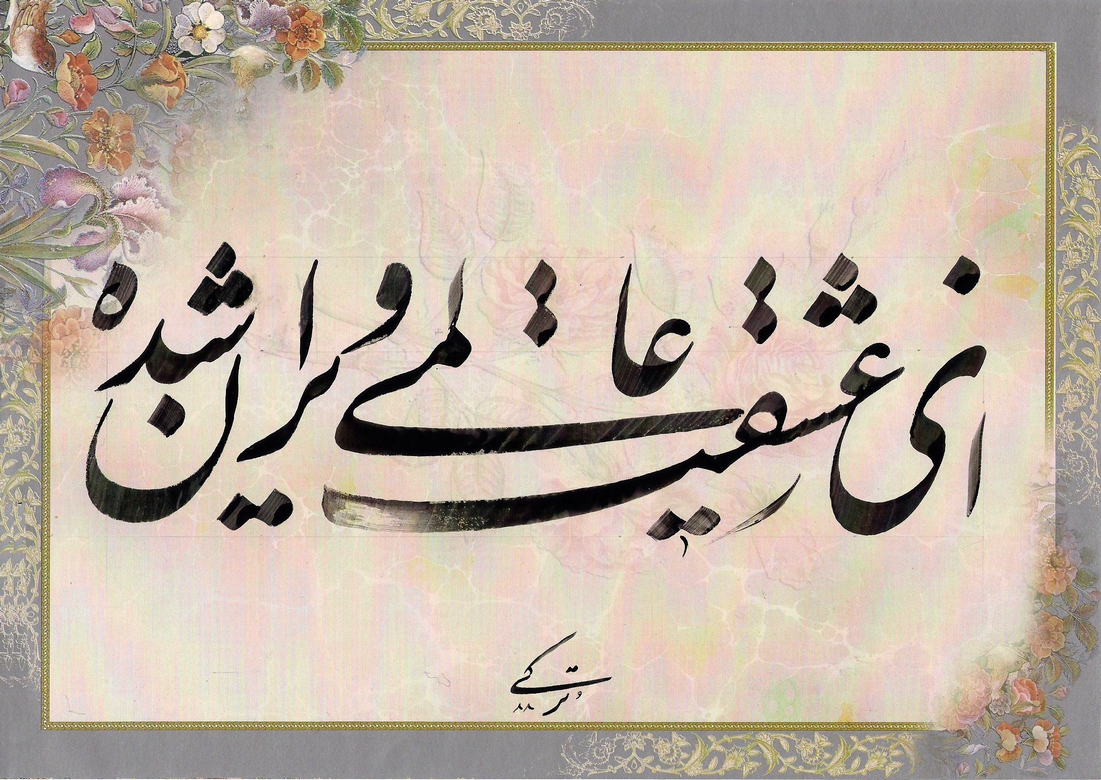 ای ز عشقت عالمی ویران شده
ترکی